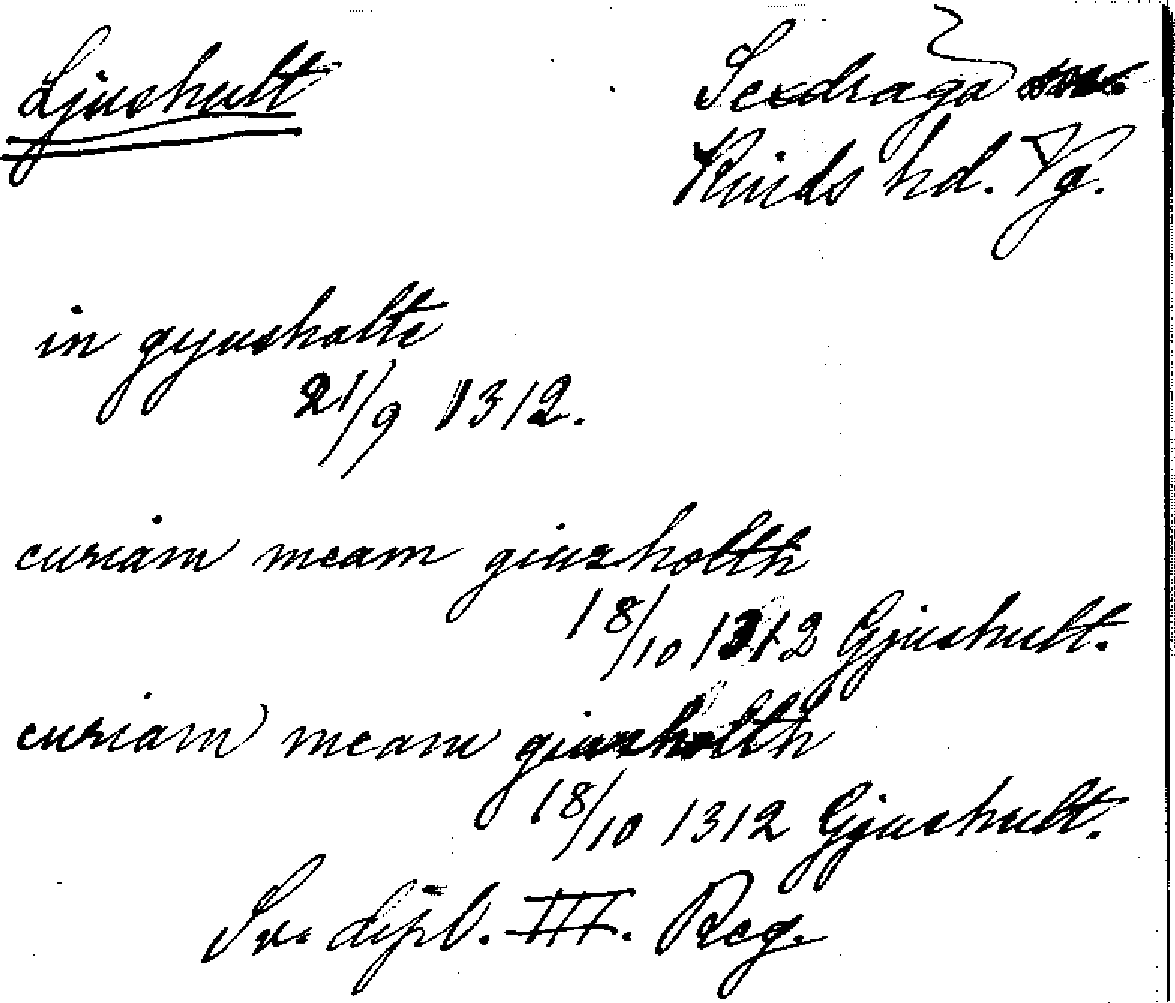 Ljushult
Sexdraga
Kinds hd. Vg.
in gyusholte
21/9 1312.
curiam meam giusholth
18/10 1312 Gjushult.
curiam meam giusholth
18/10 1312 Gjushult.
Sv. dipl. III. Reg.